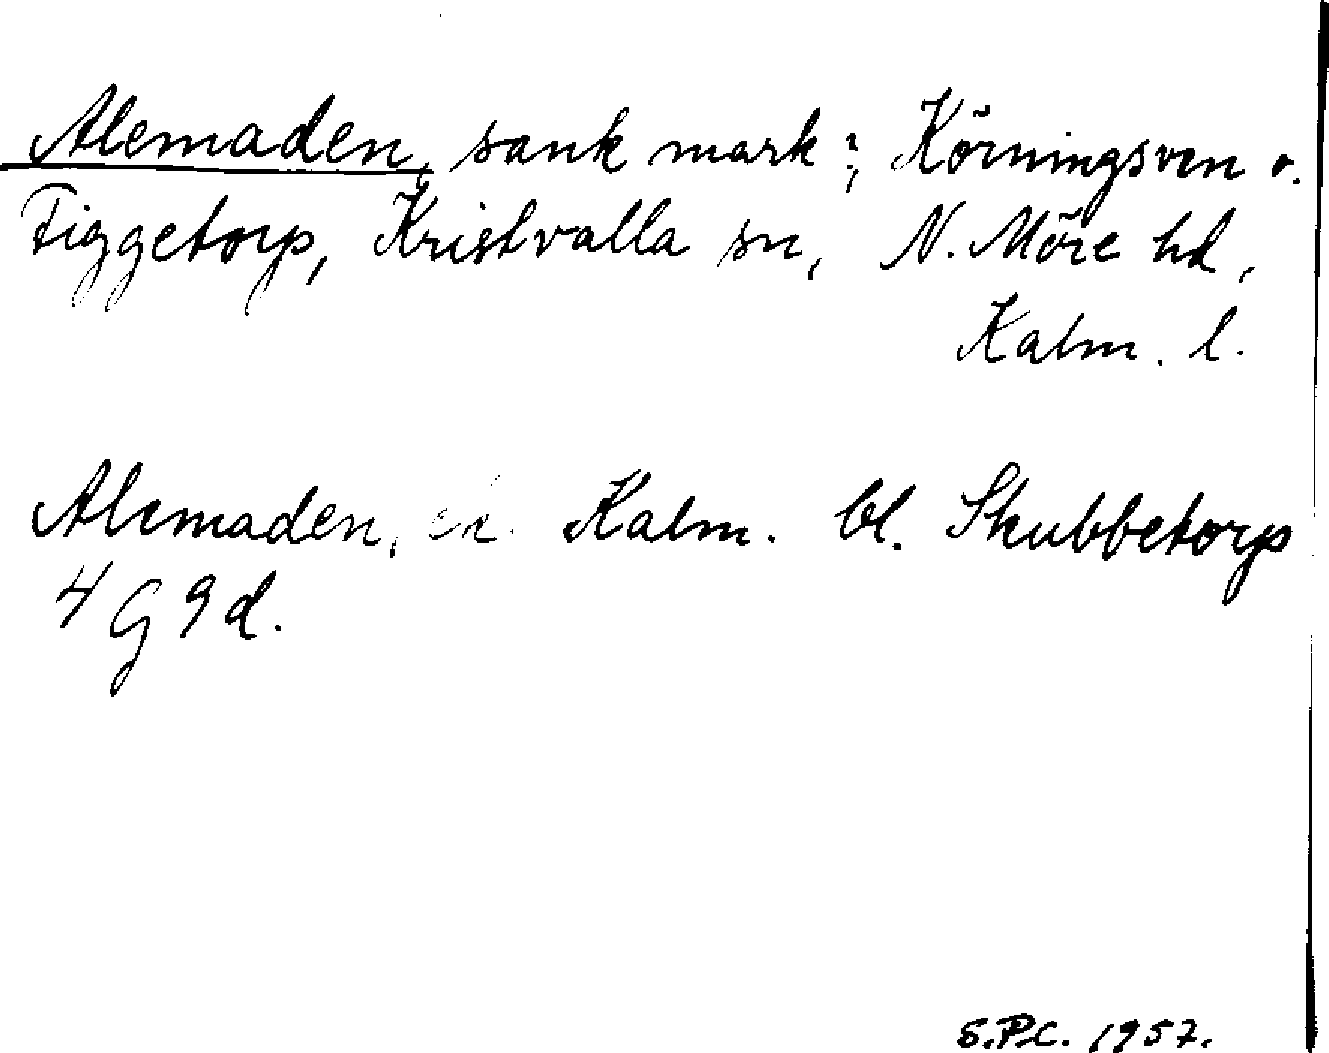 Alemaden, sank mark?, Körningsven o.
Figgetorp, Kristvalla sn, N. Möre hd,
Kalm. l.
Alemaden, ek. Kalm. bl. Skubbetorp
4 G 9 d.
S.P.C. 1957.